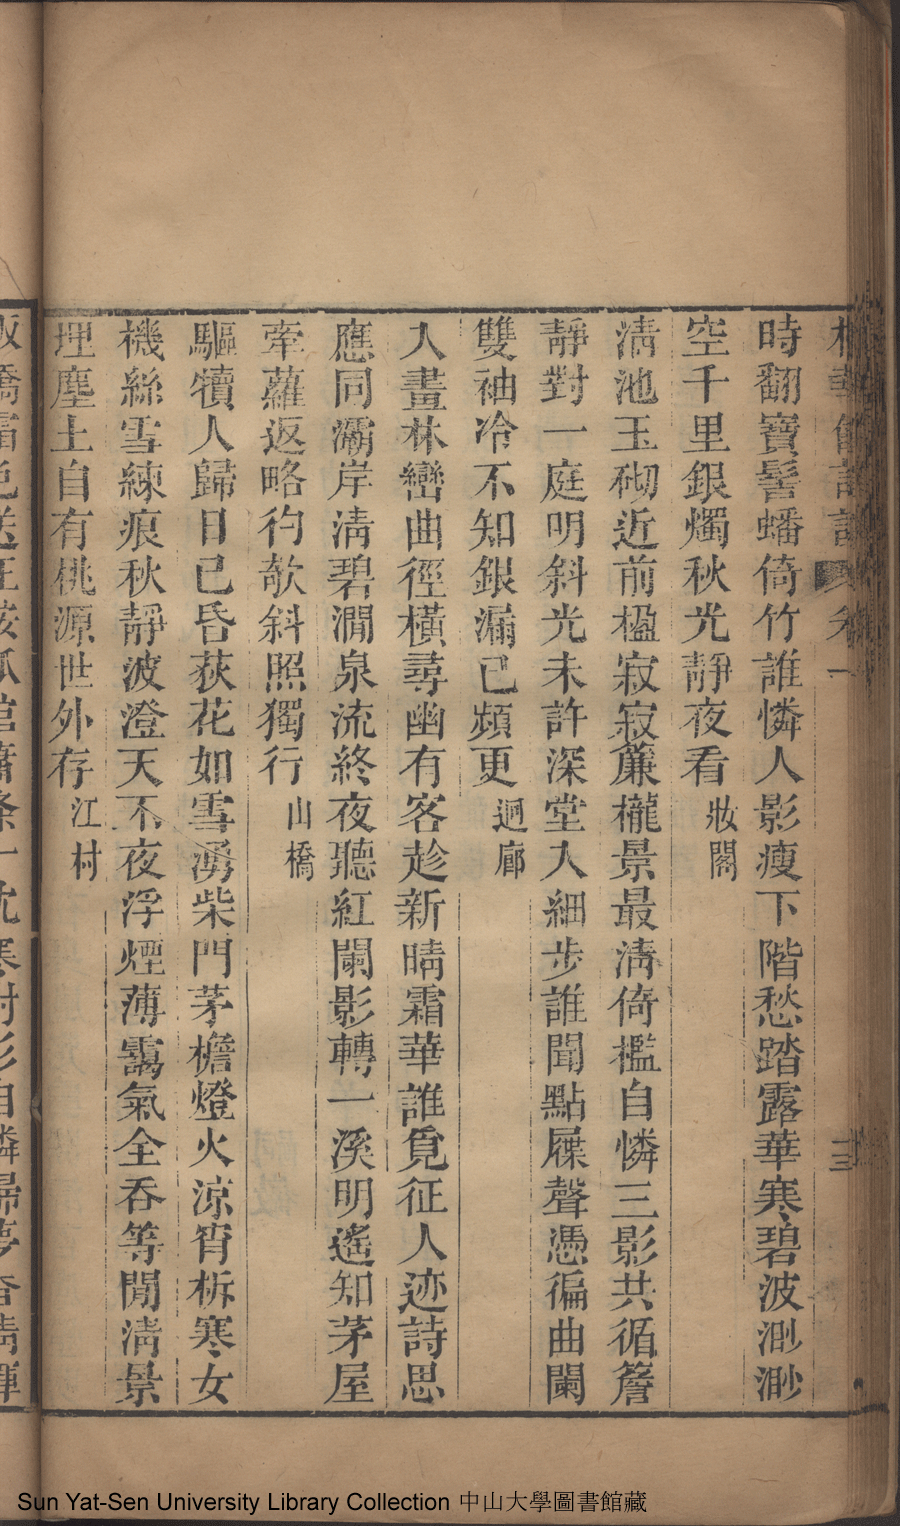 時翻寶髻蟠倚竹誰憐人影瘦下階愁踏露華寒碧波渺渺
空千里銀燭秋光靜夜看 妝閣
清池玉砌近前楹寂寂簾櫳景最清倚檻自憐三影共循簷
靜對一庭明斜光未許深堂入細步誰聞點屧聲憑徧曲闌
雙袖冷不知銀漏已頻更 迴廊
人畫林巒曲徑橫尋幽有客趁新晴霜華誰覓征人迹詩思
應同灞岸清碧澗泉流終夜聽紅闌影轉一溪明遙知茅屋
牽蘿返略彴欹斜照獨行 山橋
驅犢人歸日已昏荻花如雪湧柴門茅檐燈火涼宵柝寒女
機絲雪練痕秋靜波澄天不夜浮煙薄靄氣全吞等閒清景
埋塵土自有桃源世外存 江村
一枕寒
影自憐歸夢杳清輝
Sun Yat-Sen University Library Collection 中山大學圖書館藏